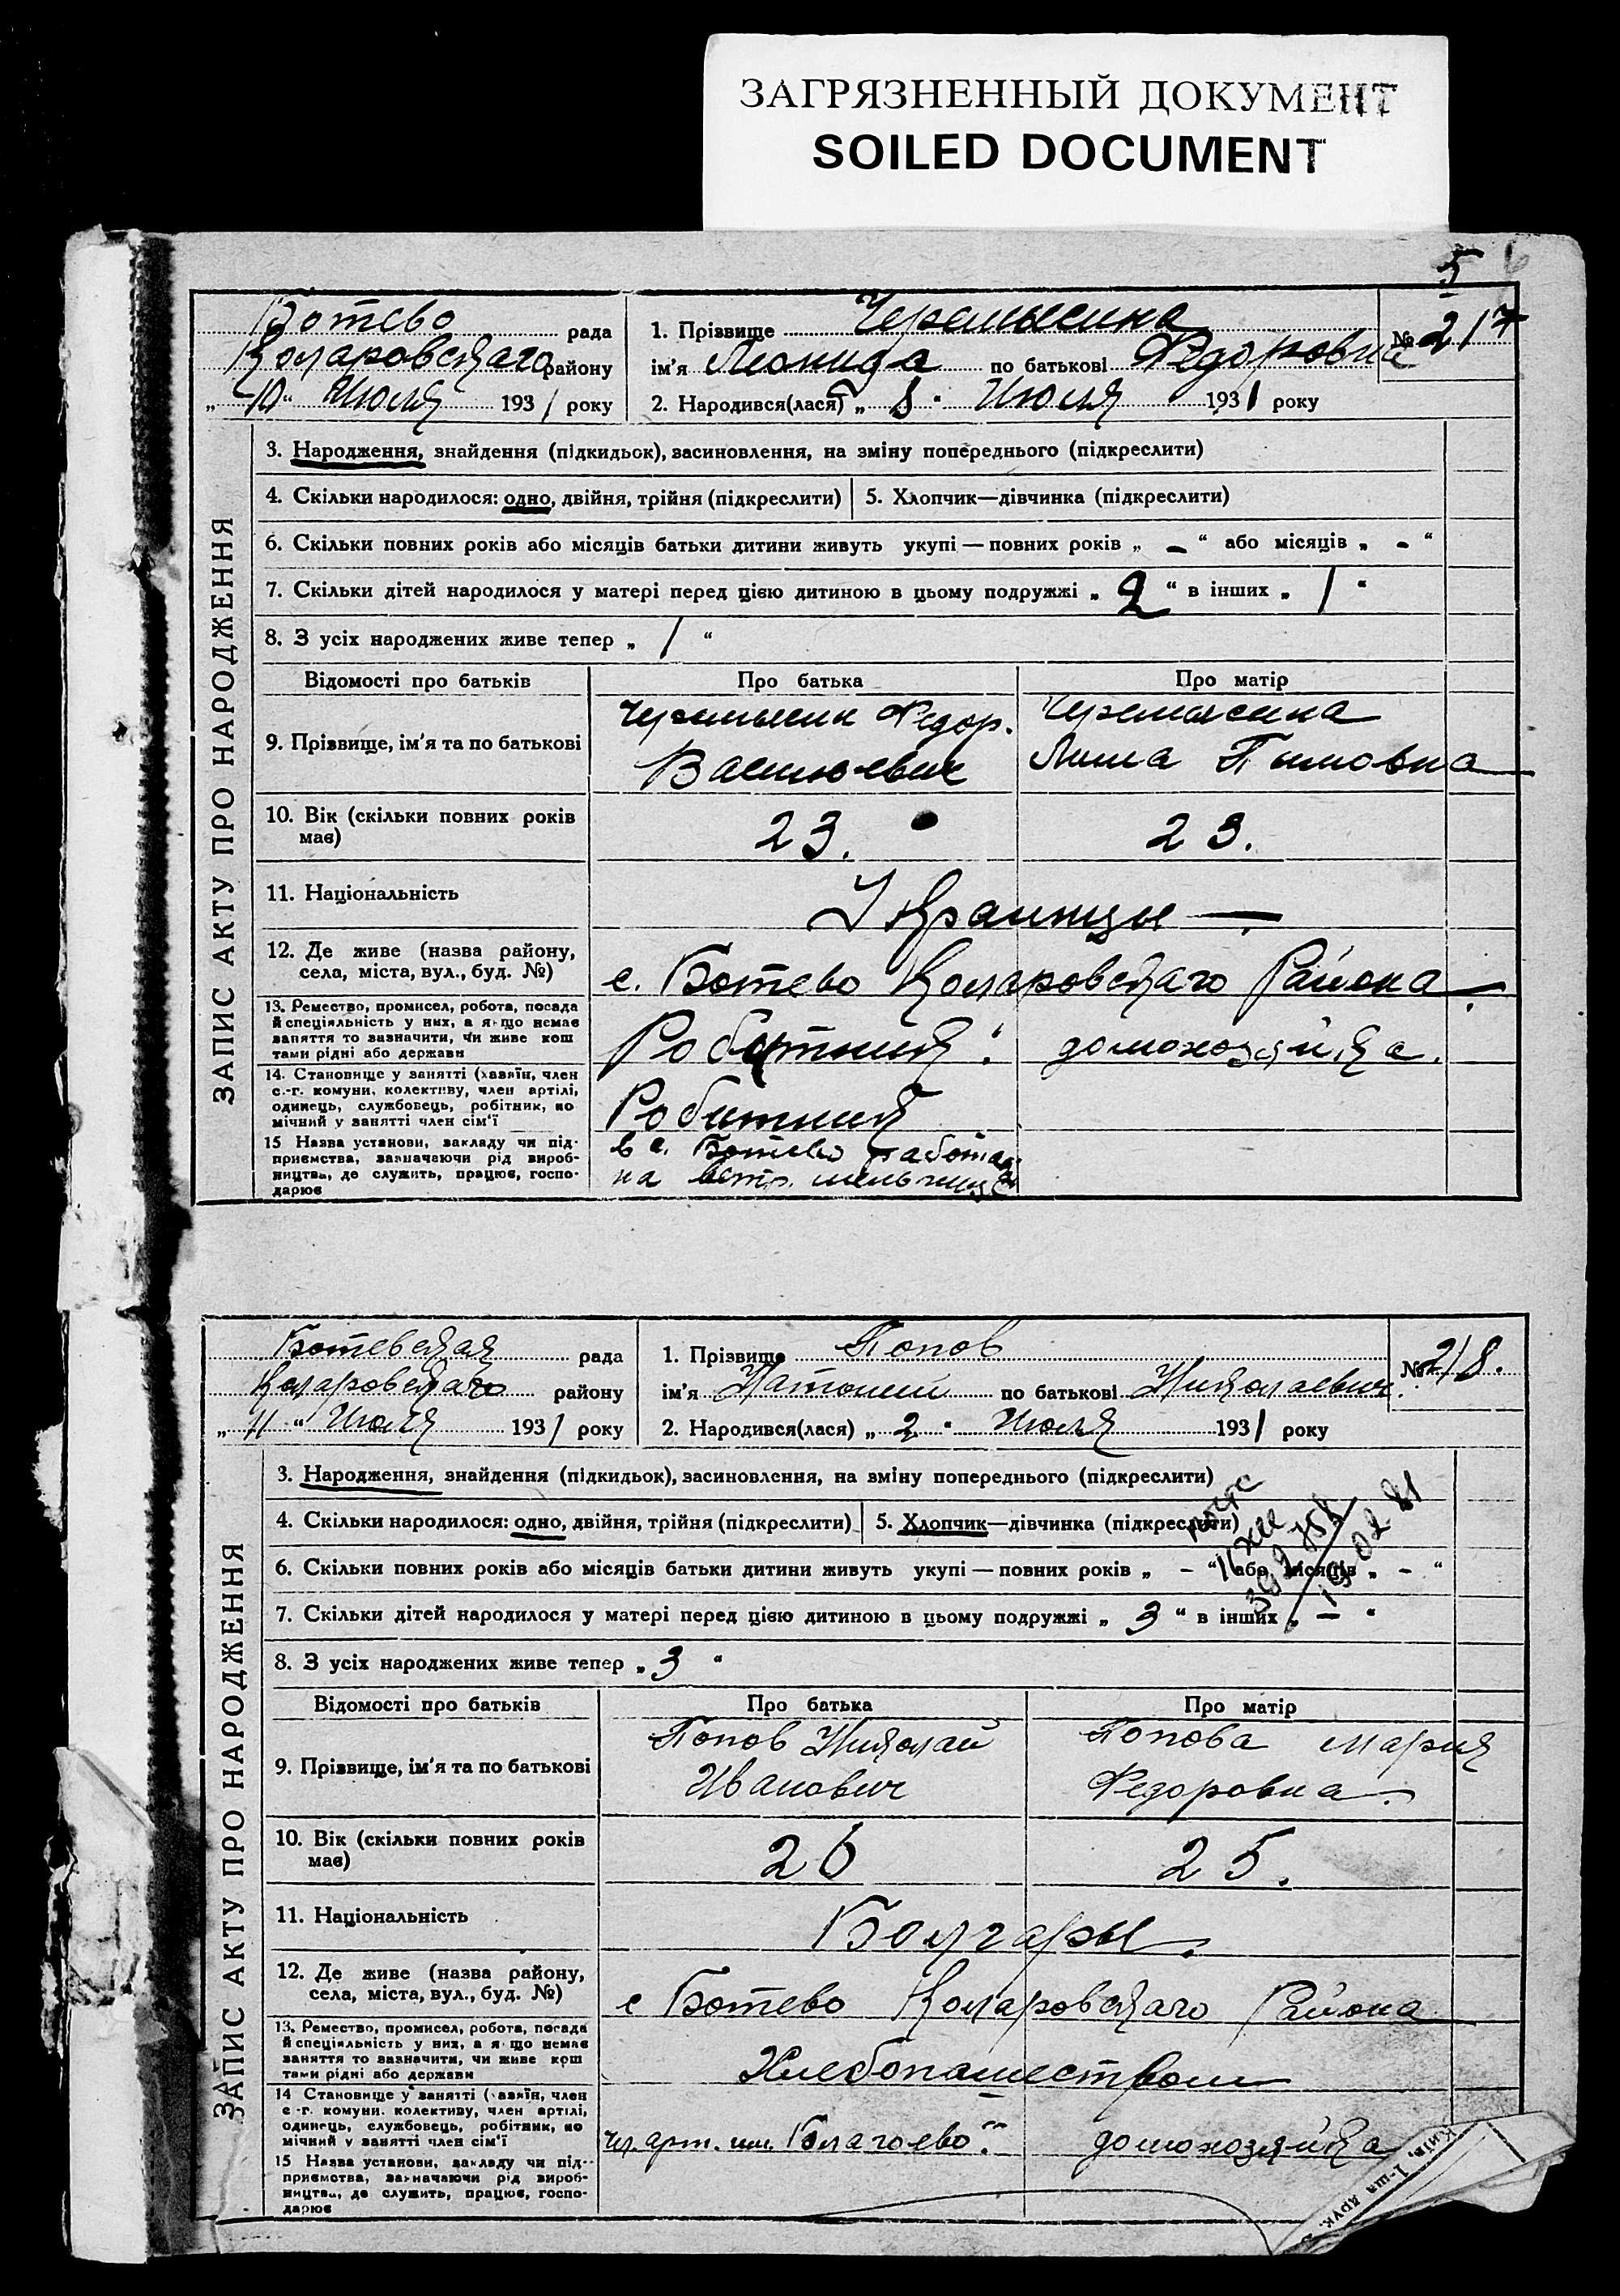 ЗАГРЯЗНЕННЫЙ ДОКУМЕНТ
SOILED DOCUMENT
5
Ботево рада
Коларовскаго району
„ 10 “ Июля 1931 року
1. Прізвище
ім'я Леонида по батькові Федоровна
№ 217
2. Народився(лася) „ 8 “ Июля 1931 року
ЗАПИС АКТУ ПРО НАРОДЖЕННЯ
3. Народження, знайдення (підкидьок), засиновлення, на зміну попереднього (підкреслити)
4. Скільки народилося: одно, двійня, трійня (підкреслити)
5. Хлопчик—дівчинка (підкреслити)
6. Скільки повних років або місяців батьки дитини живуть укупі — повних років „ – “ або місяців „ - “
7. Скільки дітей народилося у матері перед цією дитиною в цьому подружжі „ 2 “ в інших „ 1 “
8. З усіх народжених живе тепер „ 1 “
Відомості про батьків Про батька Про матір
9. Прізвище, ім'я та по батькові
Федор.
10. Вік (скільки повних років має)
23. 23.
11. Національність
Украинцы —
12. Де живе (назва району, села, міста, вул., буд. №)
с. Ботево Коларовскаго Района
13. Ремество, промисел, робота, посада
й спеціяльність у них, а якщо немає
заняття то зазначити, чи живе кош
тами рідні або держави
Роботник. домохозяйка.
14. Становище у занятті (хазяїн, член
с.-г. комуни, колективу, член артілі,
одинець, службовець, робітник, по
мічний у занятті член сім'ї
Робитник
15 Назва установи, закладу чи під-
приємства, зазначаючи рід вироб-
ництва, де служить, працює, госпо-
дарює
в с. Ботево
на мельнице
Ботевская рада
Коларовскаго району
„ 11 “ Июля 1931 року
1. Прізвище Попов
ім'я по батькові Николаевич.
№ 218.
2. Народився(лася) „ 2 “ Июля 1931 року
ЗАПИС АКТУ ПРО НАРОДЖЕННЯ
3. Народження, знайдення (підкидьок), засиновлення, на зміну попереднього (підкреслити)
4. Скільки народилося: одно, двійня, трійня (підкреслити)
5. Хлопчик—дівчинка (підкреслити)
6. Скільки повних років або місяців батьки дитини живуть укупі — повних років „ – “ або місяців „ – “
7. Скільки дітей народилося у матері перед цією дитиною в цьому подружжі „ 3 “ в інших „ — “
8. З усіх народжених живе тепер „ 3 “
Відомості про батьків Про батька Про матір
9. Прізвище, ім'я та по батькові
Попов Николай Попова Мария
Иванович Федоровна.
10. Вік (скільки повних років має)
26 25.
11. Національність
Болгары.
12. Де живе (назва району, села, міста, вул., буд. №)
с Ботево Коларовскаго Района
13. Ремество, промисел, робота, посада
й спеціяльність у них, а якщо немає
заняття то зазначити, чи живе кош
тами рідні або держави
Хлебопашеством
14 Становище у занятті (хазяїн, член
с-г. комуни, колективу, член артілі,
одинець, службовець, робітник, по
мічний у занятті член сім'ї
чл. арт. им. Благоево." домохозяйка
15 Назва установи, закладу чи під-
приємства, зазначаючи рід вироб-
ництва, де служить, працює, госпо-
дарює
Київ, 1-ша друк.